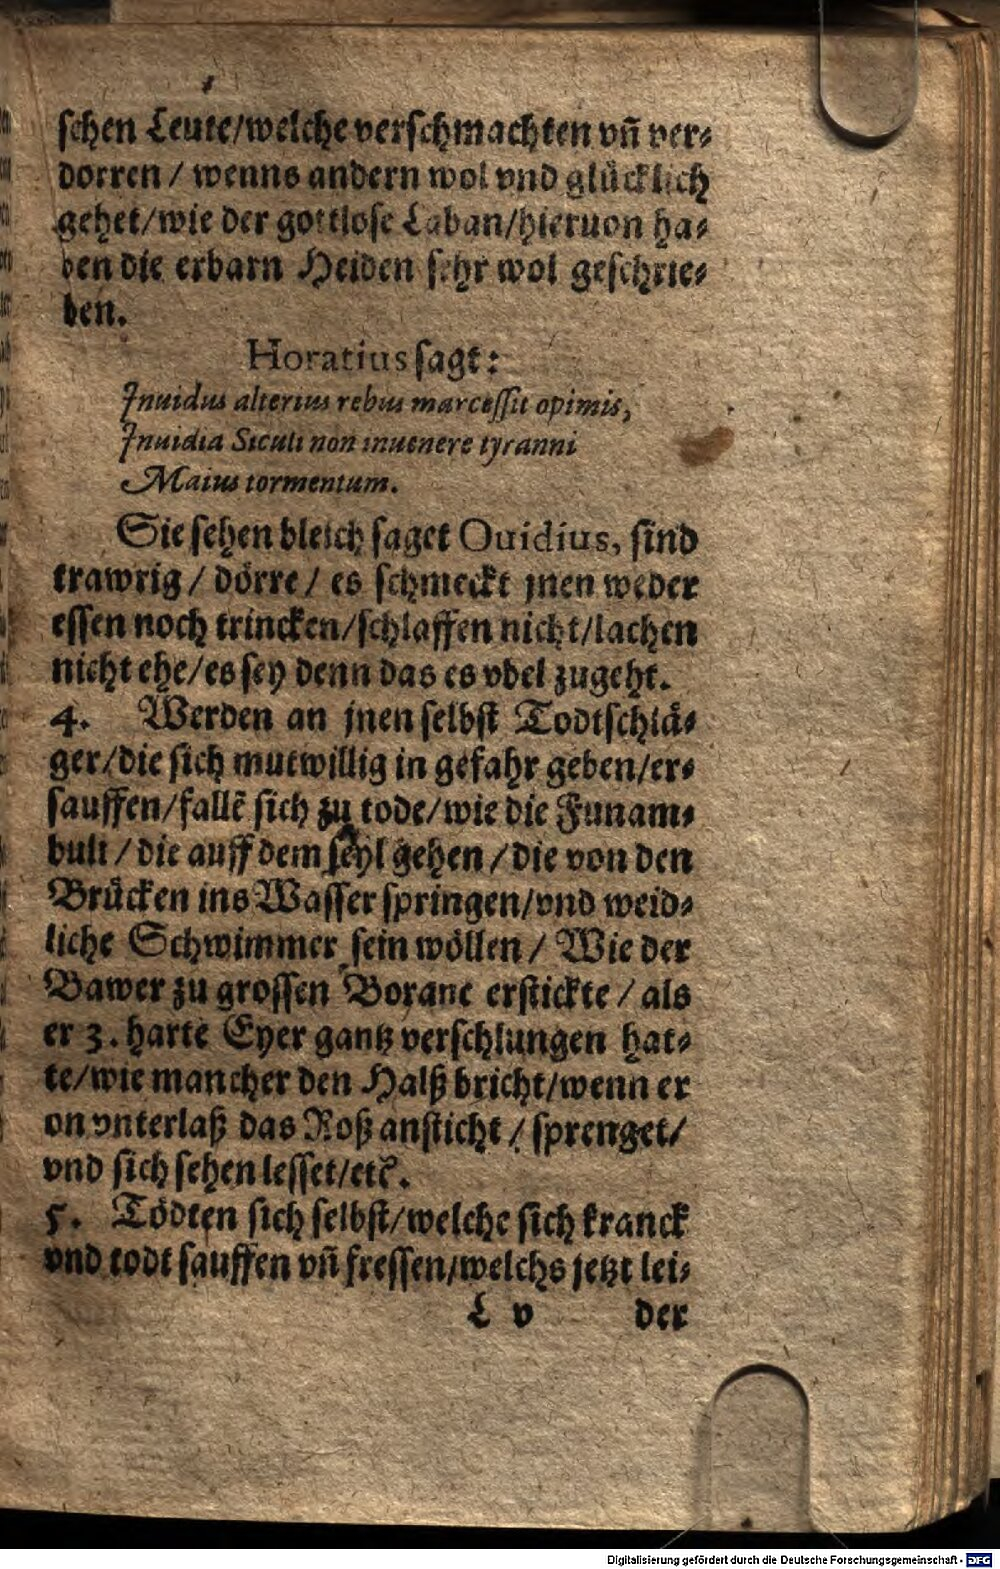 schen Leute/welche verschmachten vñ ver⸗
dorren / wenns andern wol vnd glücklich
gehet/wie der gottlose Laban/hieruon ha⸗
ben die erbarn Heiden sehr wol geschrie⸗
ben.
Horatius sagt:
Inuidus alterius rebus marcessit opimis,
Inuidia Siculi non inuenere tyranni
Maius tormentum.
Sie sehen bleich saget Ouidius, sind
trawrig / dörre / es schmeckt jnen weder
essen noch trincken/schlaffen nicht/lachen
nicht ehe/es sey denn das es vbel zugeht.
4. Werden an jnen selbst Todtschlä⸗
ger/die sich mutwillig in gefahr geben/er⸗
sauffen/fallẽ sich zu tode/wie die Funam⸗
buli / die auff dem seyl gehen / die von den
Brücken ins Wasser springen/vnd weid⸗
liche Schwimmer sein wöllen / Wie der
Bawer zu grossen Borane erstickte / als
er 3. harte Eyer gantz verschlungen hat⸗
te/wie mancher den Halß bricht/wenn er
on vnterlaß das Roß ansticht / sprenget/
vnd sich sehen lesset/etc̃.
5. Tödten sich selbst/welche sich kranck
vnd todt sauffen vñ fressen/welchs jetzt lei⸗
L v der
Digitalisierung gefördert durch die Deutsche Forschungsgemeinschaft - DFG